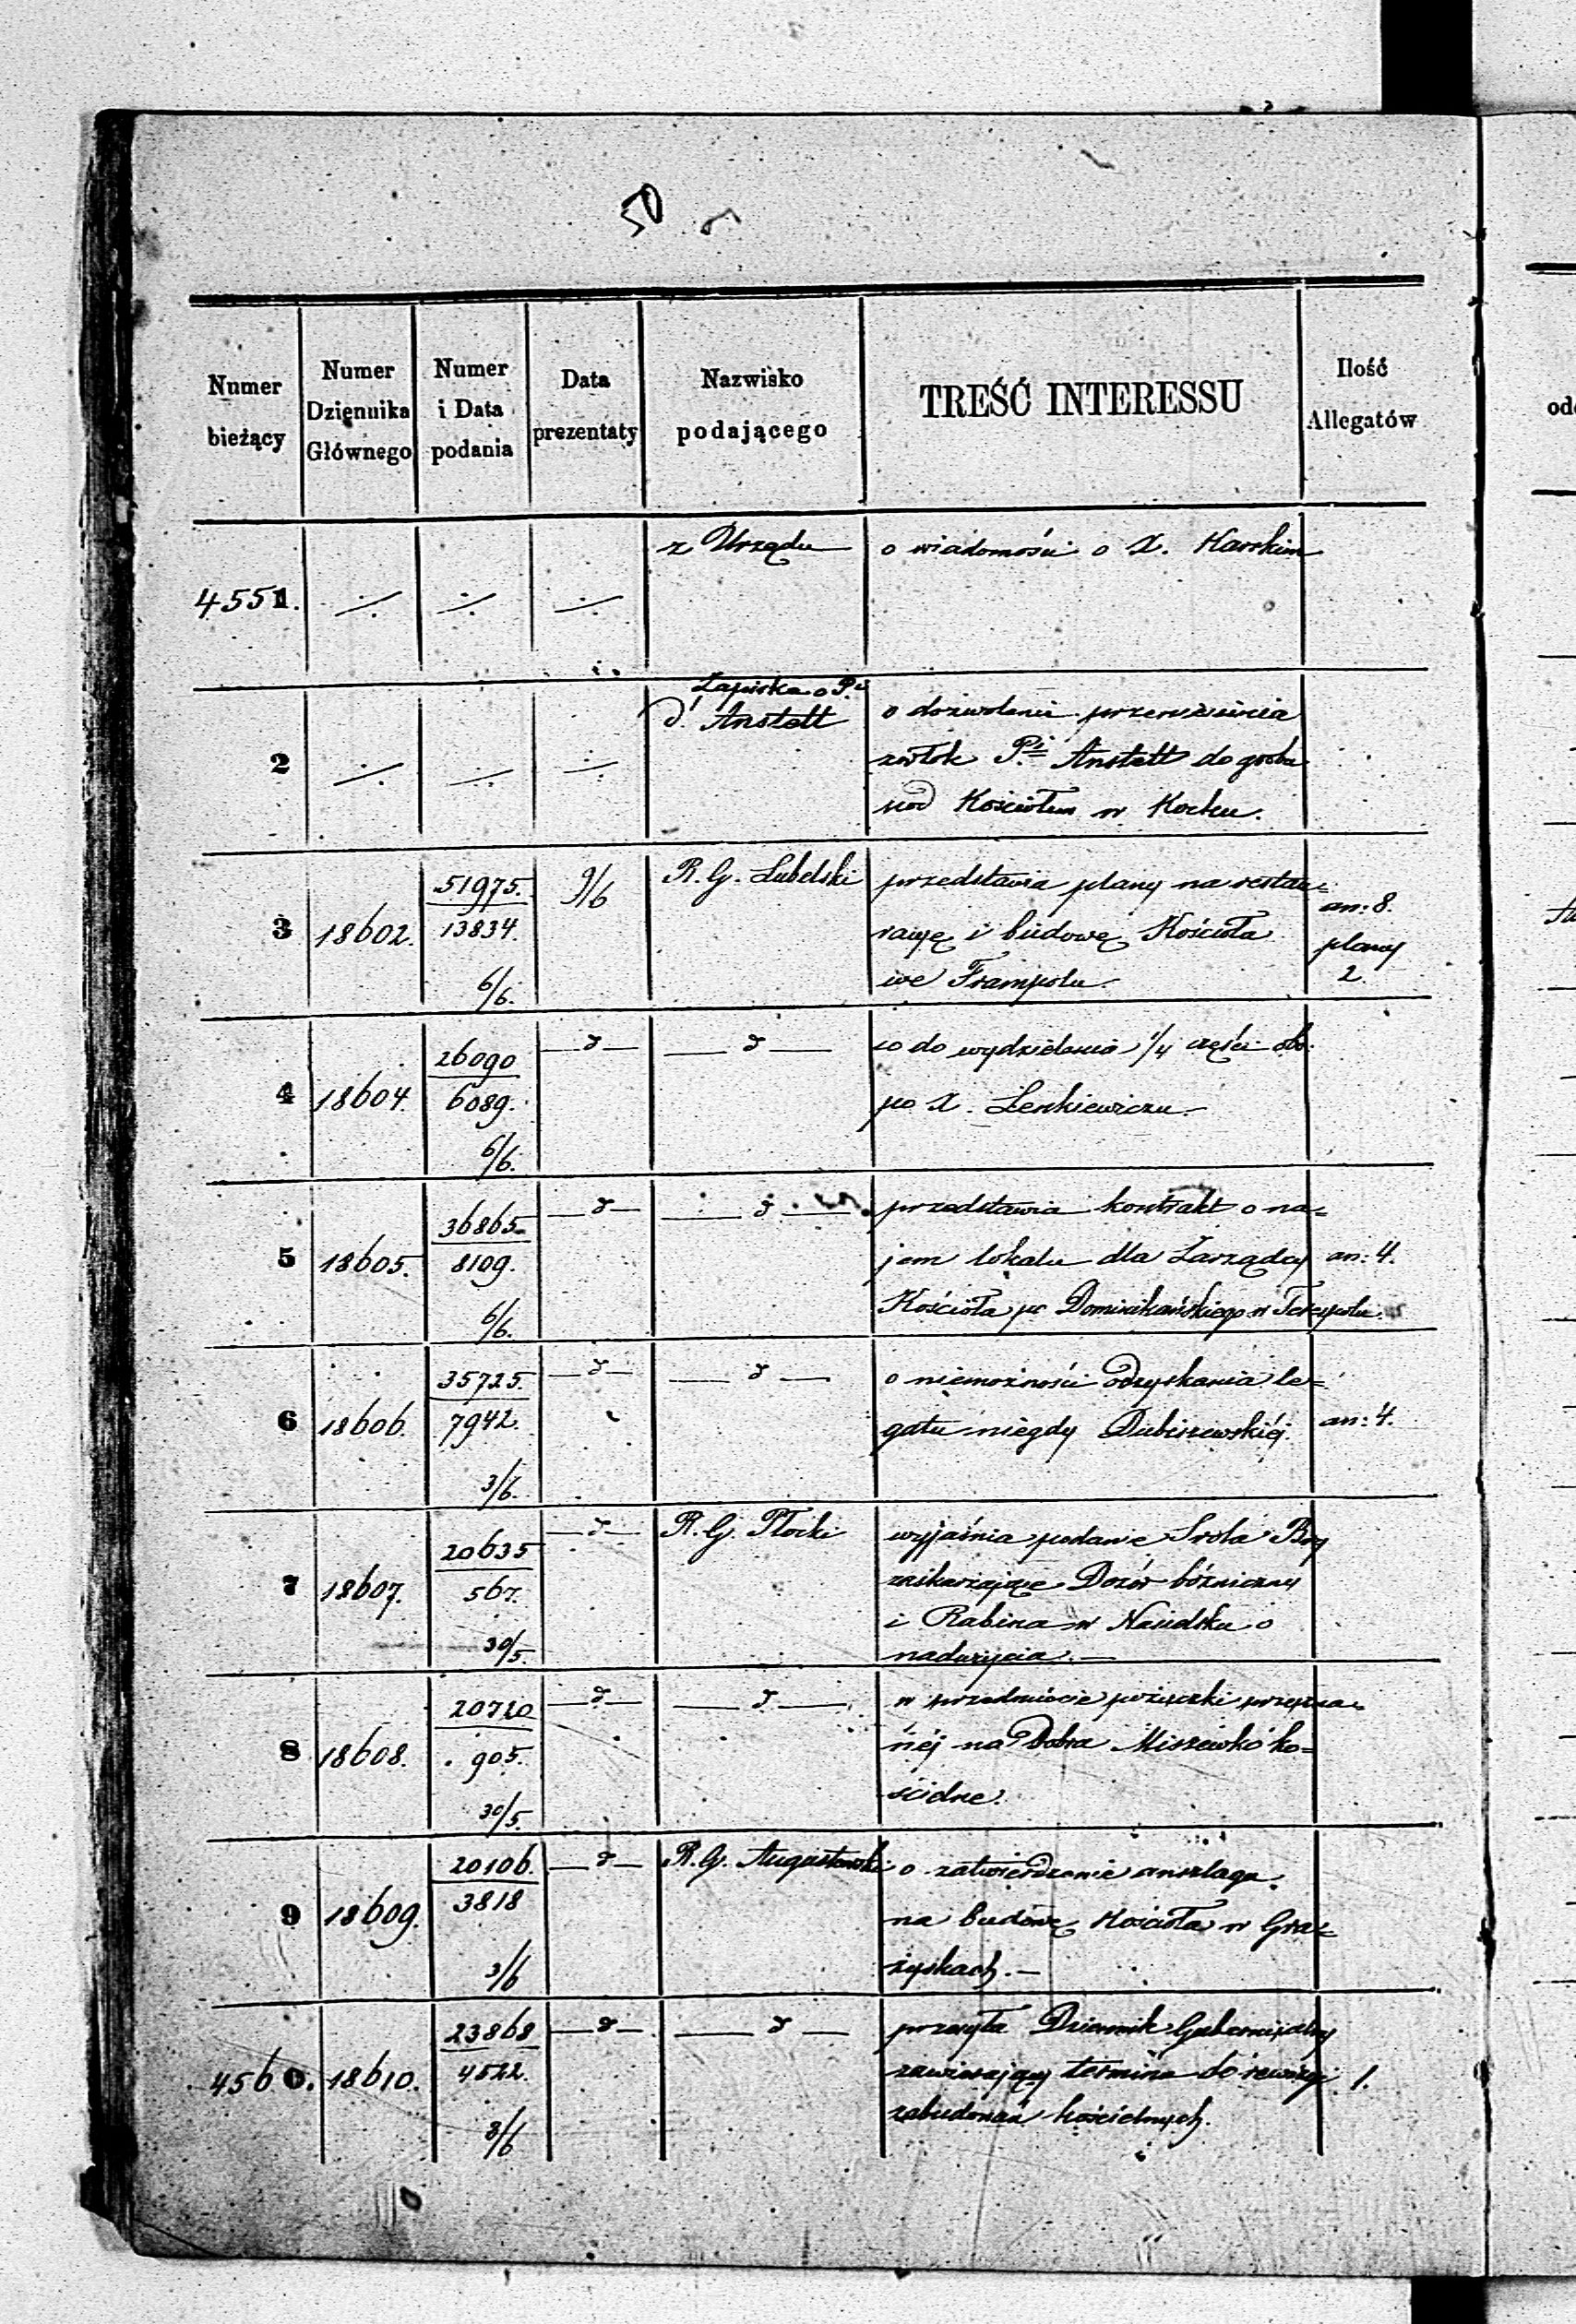 50
Numer bieżący
Numer Dziennika Głównego
Numer i Data podania
Data prezentaty
Nazwisko podającego
TREŚĆ INTERESSU
Ilość Allegatów
4551. z Urzędu o wiadomości o X. Karskim
2 Zapiska o P.i o dozwolenie przewiezienia
d'Anstett zwłok P.i Anstett do grobu
pod Kościołem w Kocku.
3 18602. 51975. 9/6 R. G. Lubelski przedstawia plany na restau= an: 8.
13834. racyę i budowę Kościoła plany
6/6. we Frampolu. 2.
4 18604. 26090 d d co do wydzielenia 1/4 części obo.
6089. po X. Lenkiewiczu.
6/6.
5 18605. 36865. d d przedstawia kontrakt o na=
8109. jem lokalu dla Zarządcy an: 4.
6/6. Kościoła po Dominikańskiego w Terespolu.
6 18606. 35725. d d o niemożności odzyskania le=
7942. gatu niegdy Dubiszewskiéj. an: 4.
3/6.
7 18607. 20635 d R. G. Płocki wyjaśnia podanie Srola
567. zaskarżające Dozór bóżniczny
30/5. i Rabina w Nasielsku o
nadużycia.
8 18608. 20720 d d w przedmiocie pożyczki
905. néj na Dobra Miszewko ko=
30/5. ścielne.
9 18609. 20106. d R. G. Augustowski o zatwierdzenie anszlagu
3818 na budowę Kościoła w Gra=
3/6 żyskach.
4560. 18610. 23868 d d przesyła Dziennik Gubernijalny
4522. zawierający termina do rewizyi 1.
3/6 zabudowań kościelnych.